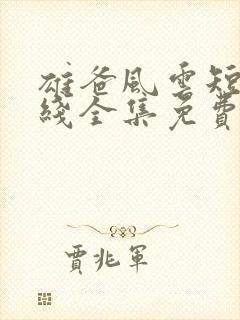 雄爸風雲短
綫全集免費
賈兆軍